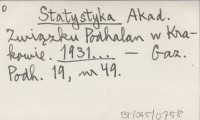 Statystyka Akad.
Związku Podhalan w Kra-
kowie. 1931... — Gaz.
Podh. 19, nr 49.